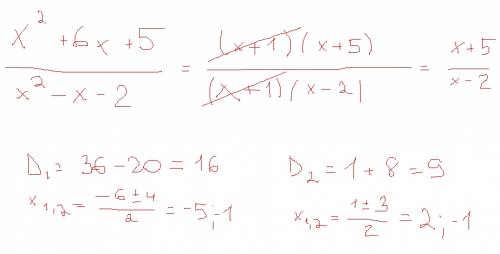 x² + 6x + 5 / x² - x - 2 = (x+1)(x+5) / (x+1)(x-2| = x+5 / x-2
D₁ = 36 - 20 = 16
x₁,₂ = -6 ± 4 / 2 = -5; -1
D₂ = 1 + 8 = 9
x₁,₂ = 1 ± 3 / 2 = 2; -1